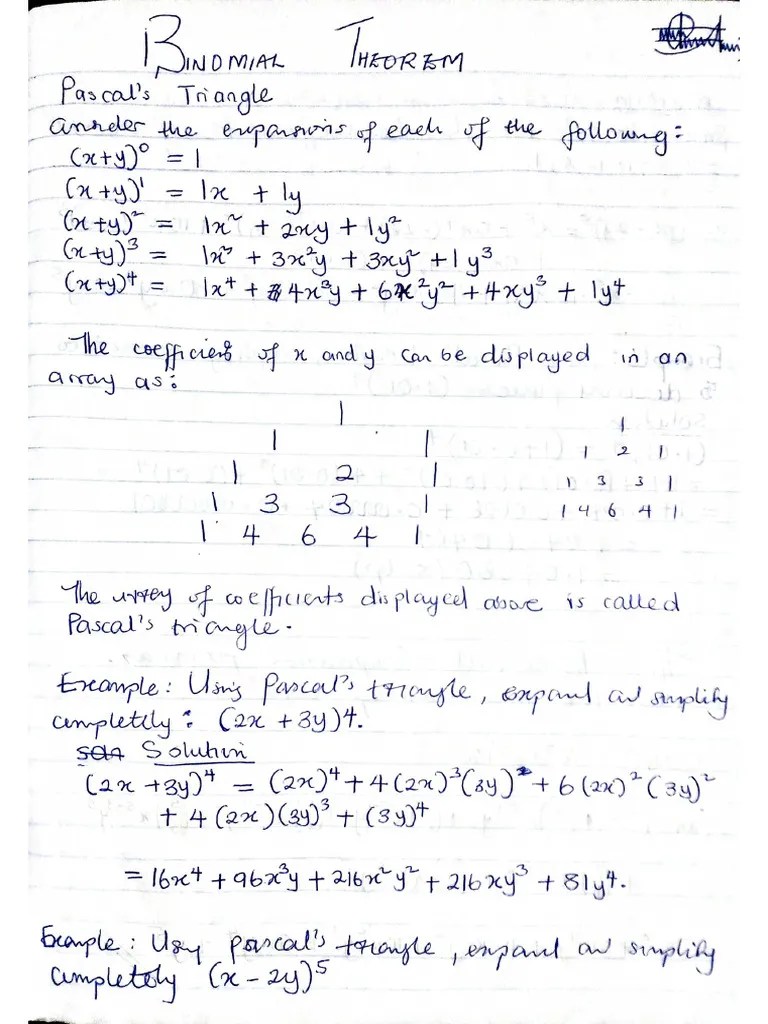 BINOMIAL THEOREM
Pascal's Triangle
Consider the expansions of each of the following:
(x+y)⁰ = 1
(x+y)¹ = 1x + 1y
(x+y)² = 1x² + 2xy + 1y²
(x+y)³ = 1x³ + 3x²y + 3xy² + 1y³
(x+y)⁴ = 1x⁴ + 4x³y + 6x²y² + 4xy³ + 1y⁴
The coefficients of x and y can be displayed in an
array as:
1
1 1
1 2 1
1 3 3 1
1 4 6 4 1
1
1 2 1
1 3 3 1
1 4 6 4 1
The array of coefficients displayed above is called
Pascal's triangle.
Example: Using Pascal's triangle, expand and simplify
completely: (2x + 3y)⁴.
Solution
(2x + 3y)⁴ = (2x)⁴ + 4(2x)³(3y) + 6(2x)²(3y)²
+ 4(2x)(3y)³ + (3y)⁴
= 16x⁴ + 96x³y + 216x²y² + 216xy³ + 81y⁴.
Example: Using pascal's triangle, expand and simplify
completely (x - 2y)⁵